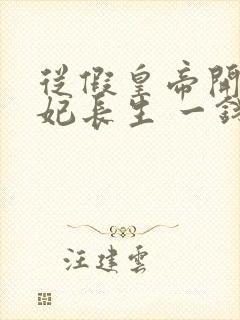 從假皇帝開
妃長生 一錢
汪建雲